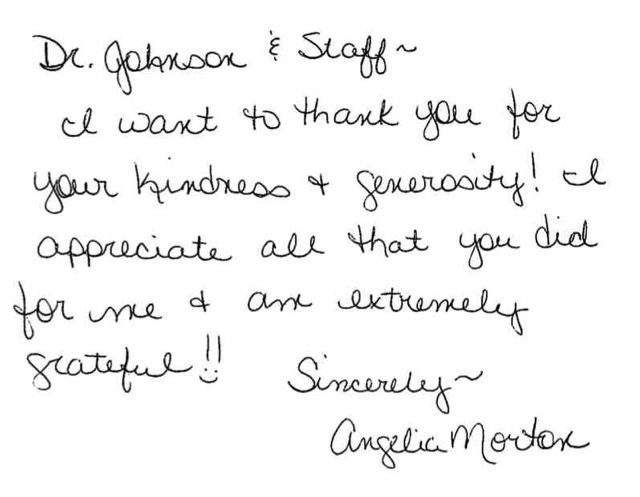 Dr. Johnson & Staff~
I want to thank you for
your kindness & generosity! I
appreciate all that you did
for me & am extremely
grateful!!
Sincerely~
Angelia Morton